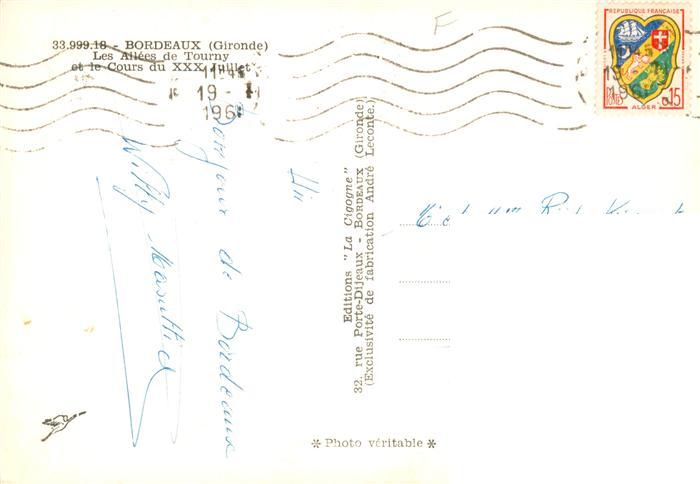 33.999.18 - BORDEAUX (Gironde)
Les Allées de Tourny
et le Cours du XXX Juillet
11H45
19 -
196
F
REPUBLIQUE FRANÇAISE
POSTES
0,15
ALGER
Bonjour de Bordeaux
Willy
Editions "La Cigogne"
32, rue Porte-Dijeaux - BORDEAUX (Gironde)
(Exclusivité de fabrication André Leconte.)
* Photo véritable *